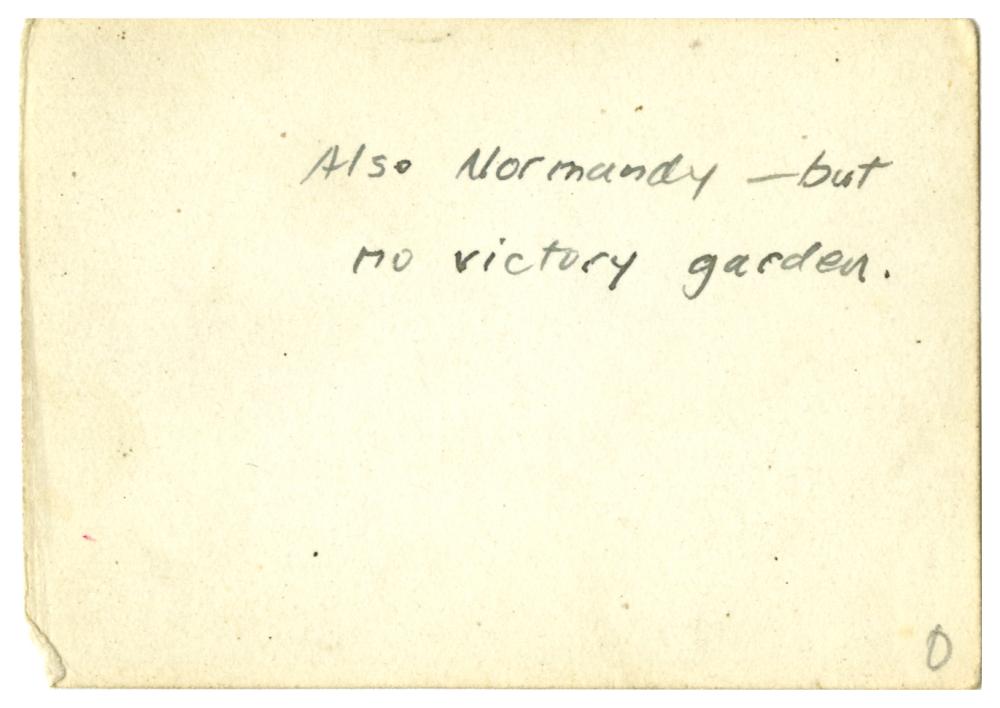 Also Normandy — but
no victory garden.
0